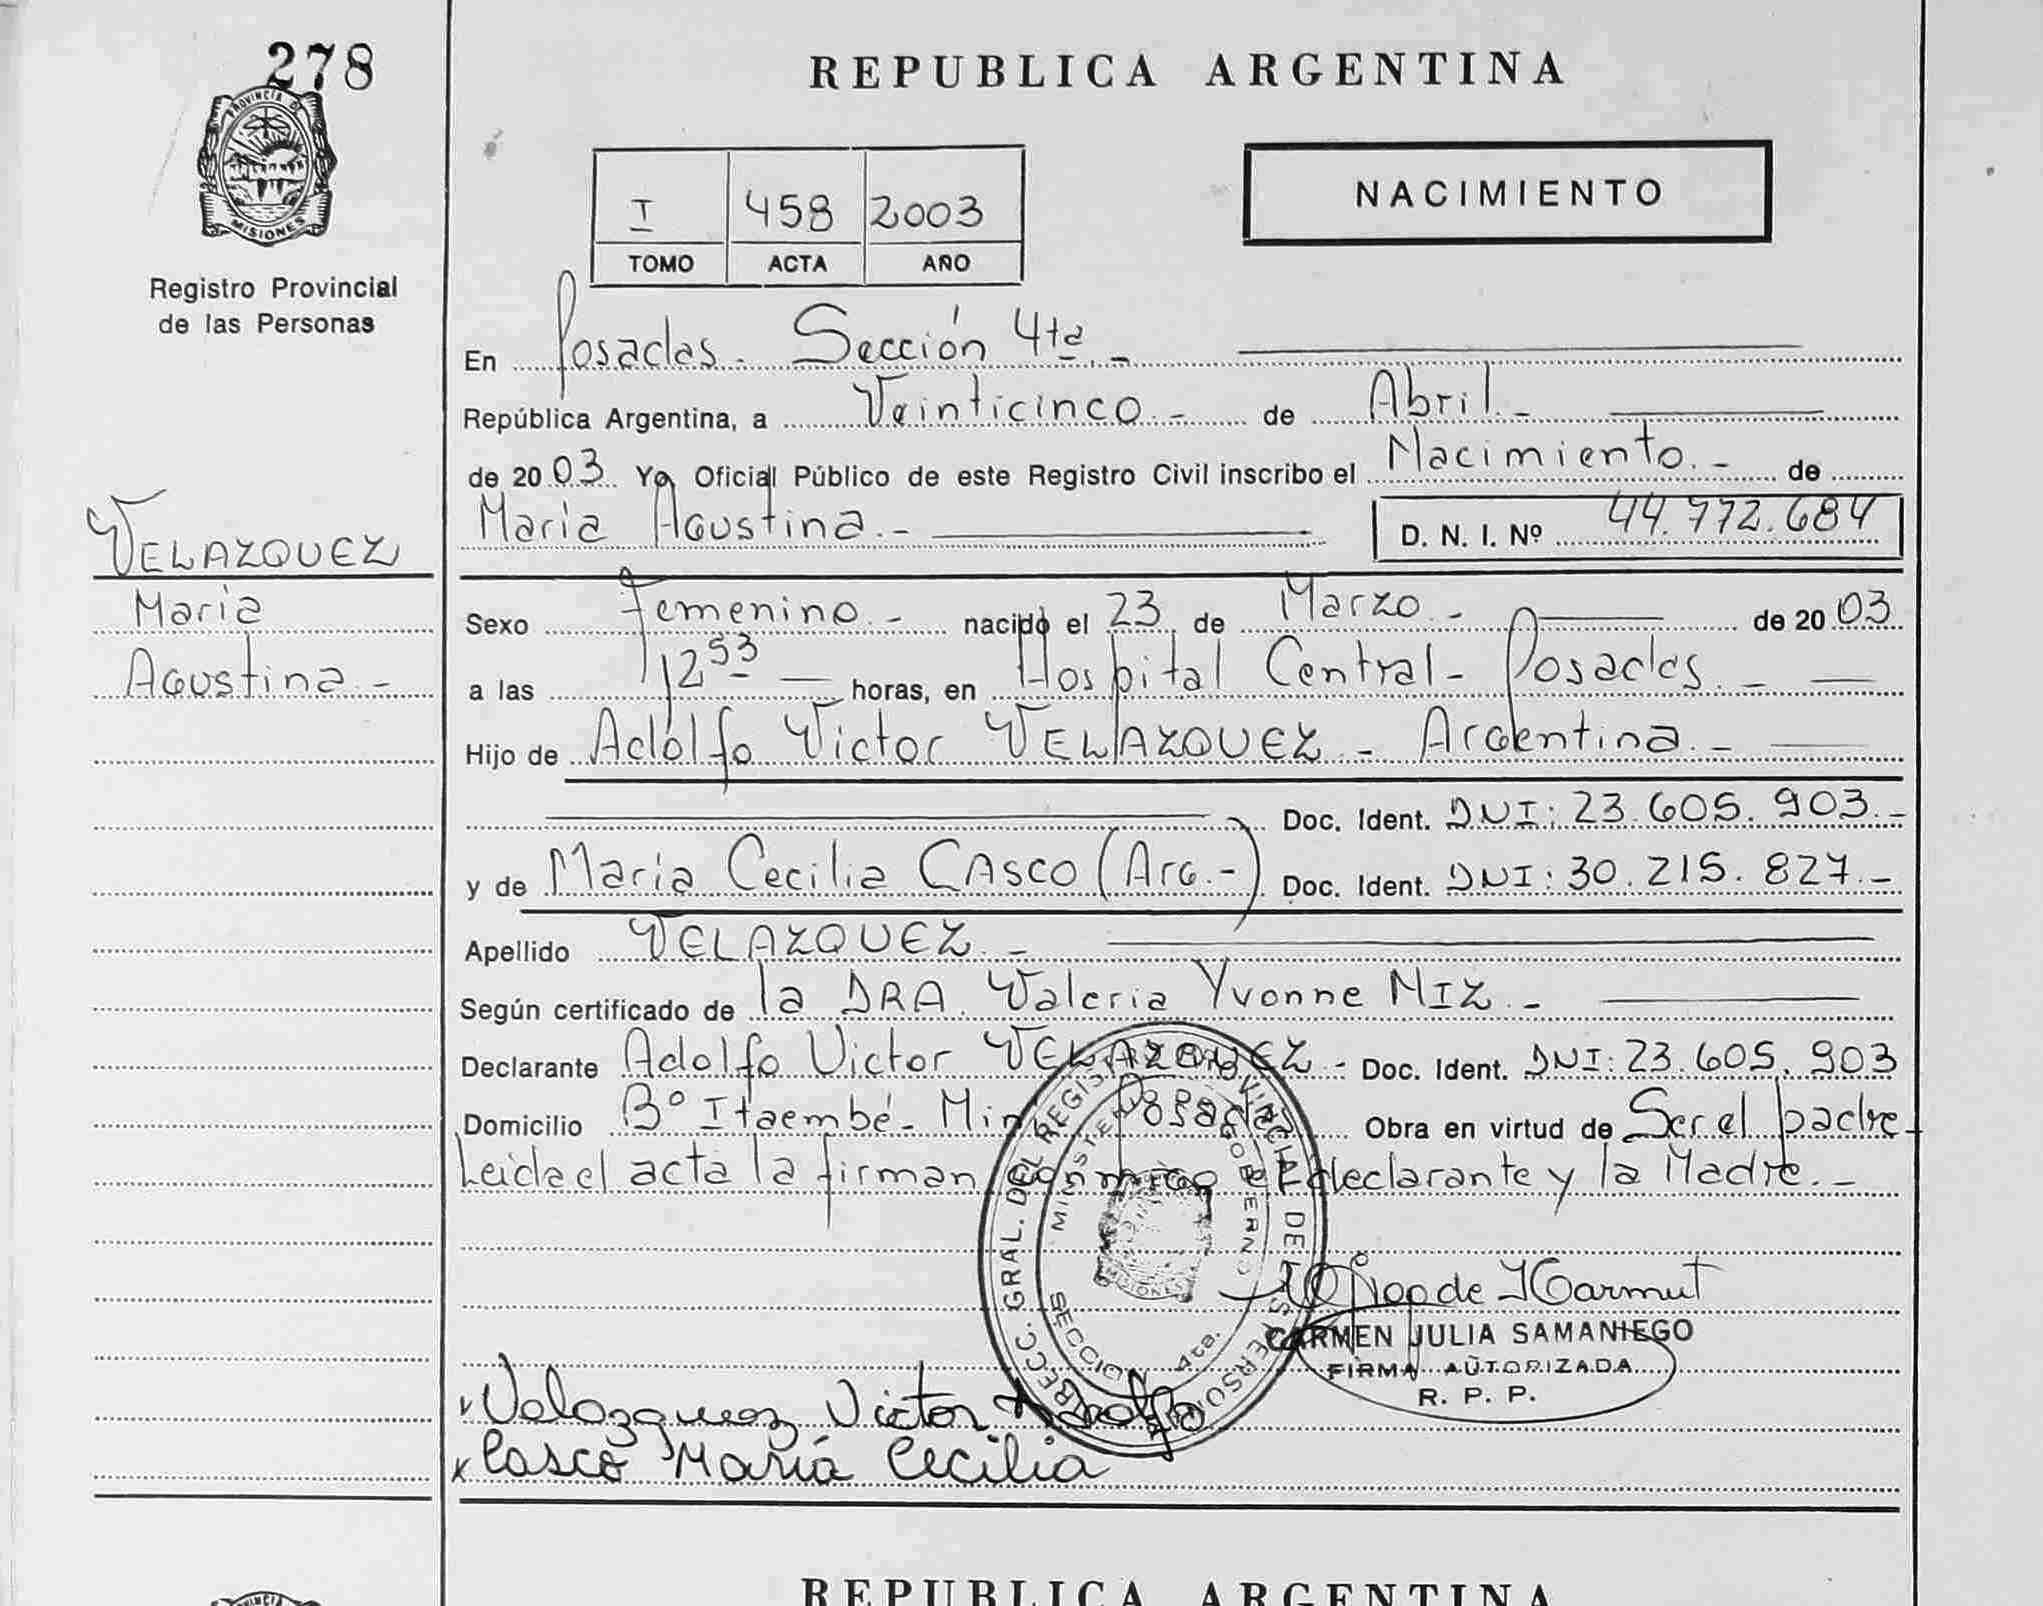 278
PROVINCIA DE
MISIONES
Registro Provincial
de las Personas
VELAZQUEZ
Maria
Agustina.-
REPUBLICA ARGENTINA
I 458 2003
TOMO ACTA AÑO
NACIMIENTO
En Posadas. Sección 4ta.-
República Argentina, a Veinticinco.- de Abril.-
de 2003 Yo Oficial Público de este Registro Civil inscribo el Nacimiento.- de
Maria Agustina.- D. N. I. Nº 44.772.684
Sexo Femenino.- nacido el 23 de Marzo.- de 2003
a las 12 53 horas, en Hospital Central- Posadas.-
Hijo de Adolfo Victor VELAZQUEZ.- Argentina.-
Doc. Ident. DNI: 23.605.903.-
y de Maria Cecilia CASCO (Arg.-) Doc. Ident. DNI: 30.215.827.-
Apellido VELAZQUEZ.-
Según certificado de la DRA. Valeria Yvonne MIZ.-
Declarante Adolfo Victor VELAZQUEZ.- Doc. Ident. DNI: 23.605.903
Domicilio Bº Itaembé- Miní Posadas Obra en virtud de Ser el padre
Leida el acta la firman conmigo el declarante y la Madre.-
CARMEN JULIA SAMANIEGO
FIRMA AUTORIZADA
R. P. P.
Velazquez Victor Adolfo
Casco María Cecilia
REPUBLICA ARGENTINA